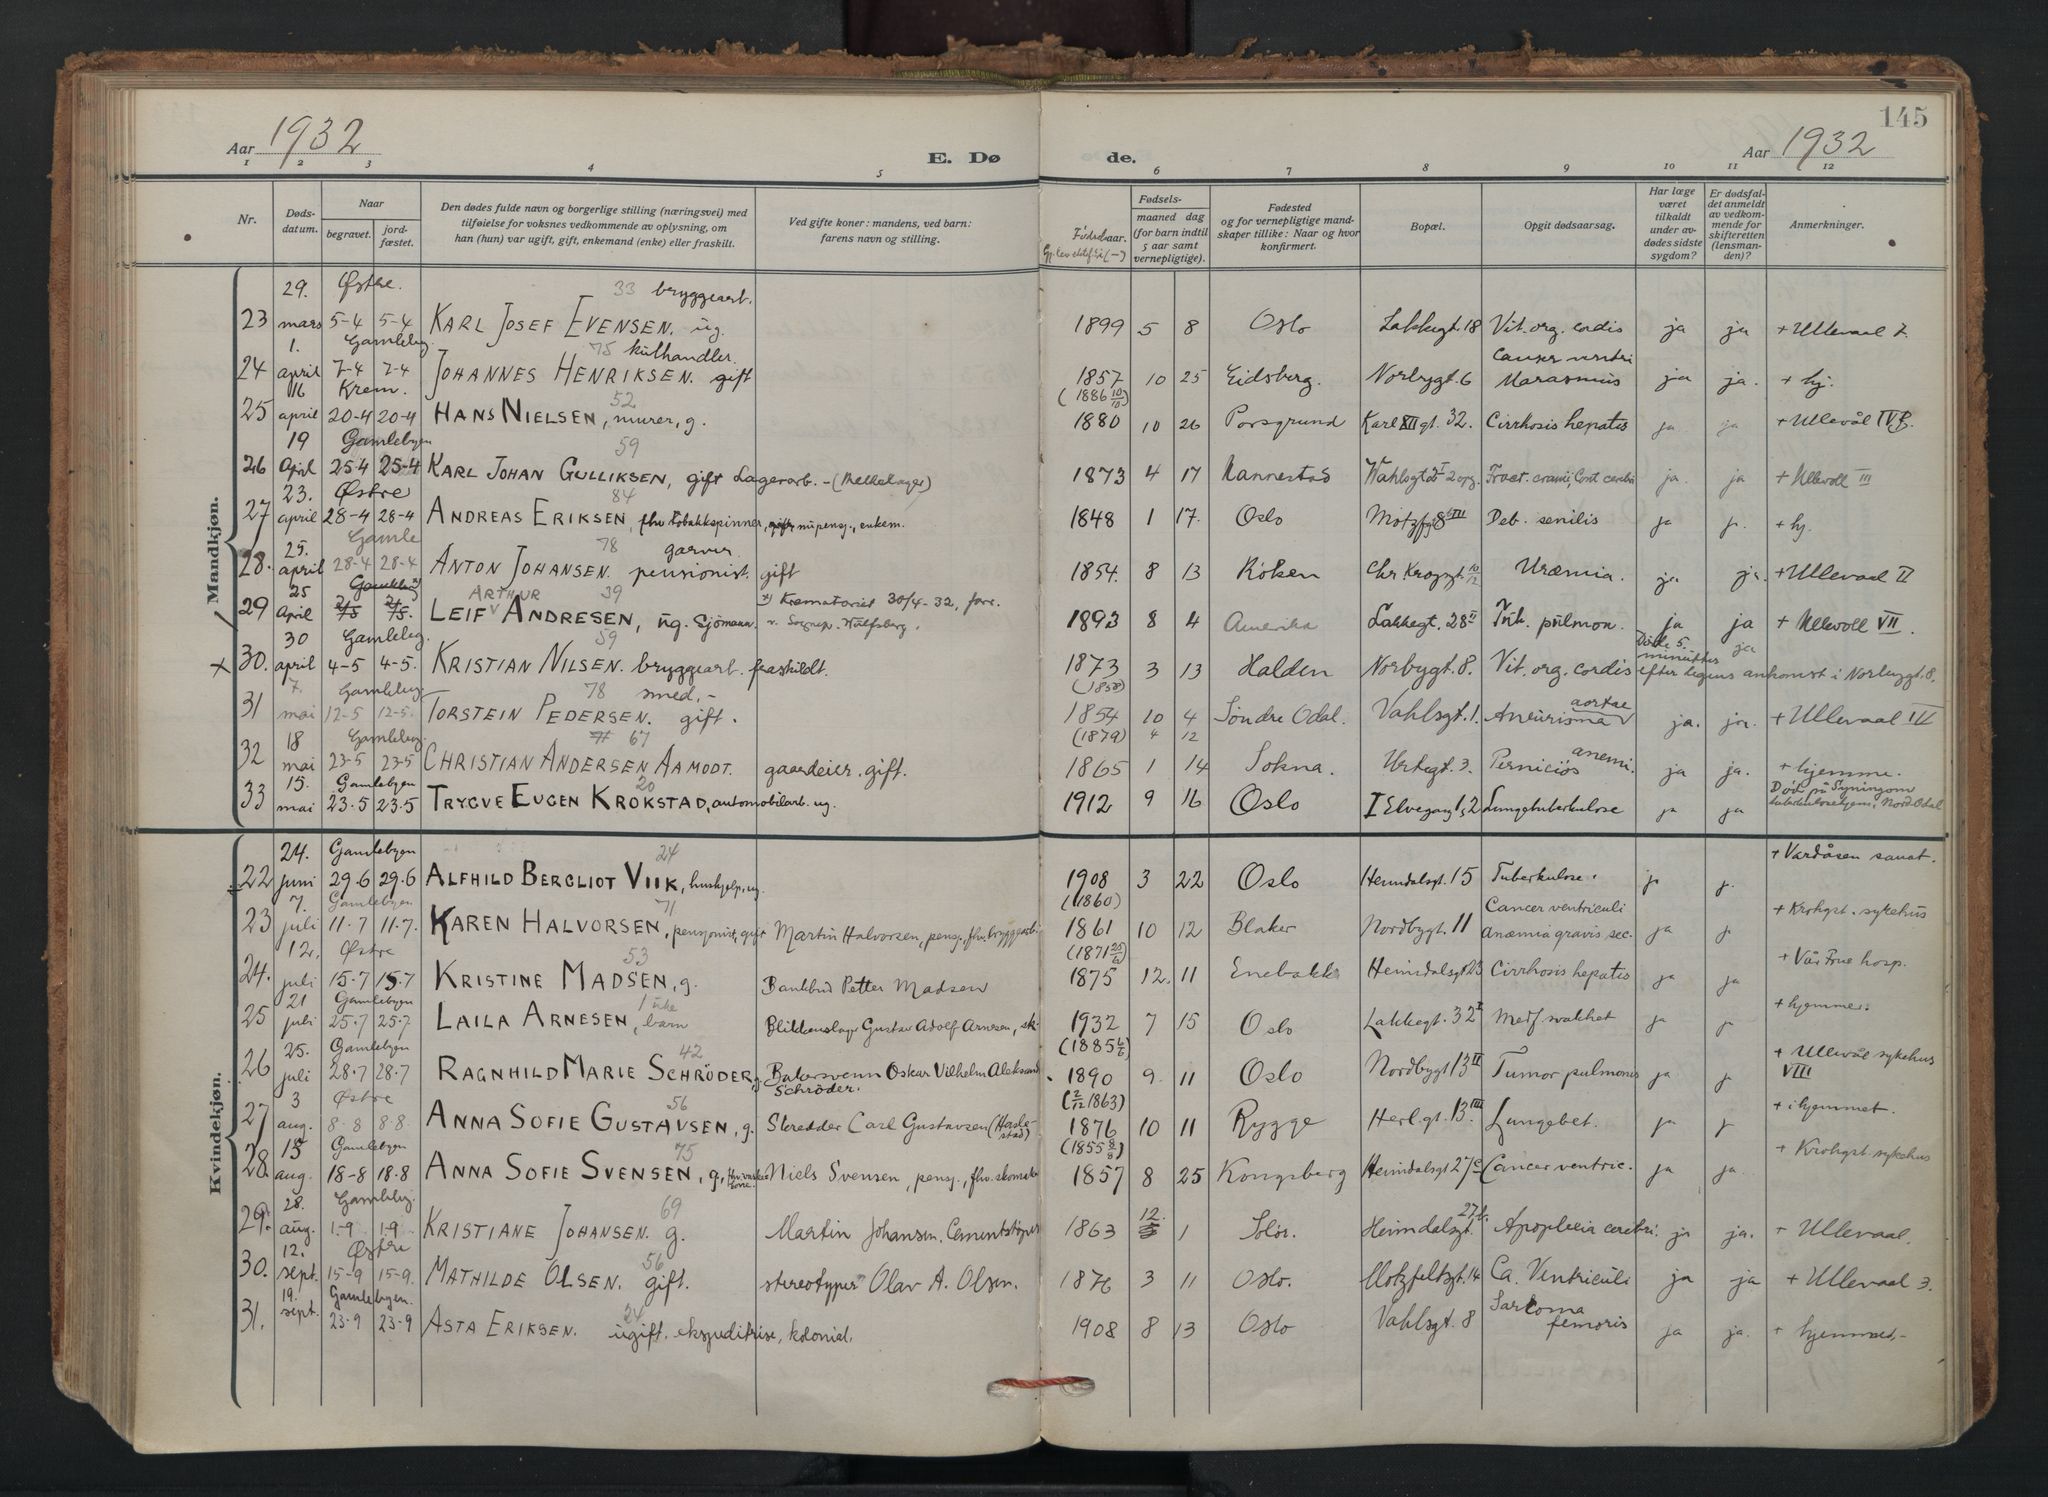 145
Aar 1932
E. Dø
de.
Aar 1932
1 2 3 4 5 6 7 8 9 10 11 12
Nr.
Døds-
datum.
Naar
begravet.
jord-
fæstet.
Den dødes fulde navn og borgerlige stilling (næringsvei) med
tilføielse for voksnes vedkommende av oplysning, om
han (hun) var ugift, gift, enkemand (enke) eller fraskilt.
Ved gifte koner: mandens, ved barn:
farens navn og stilling.
Fødselsaar.
Fødsels-
maaned dag
(for barn indtil
5 aar samt
vernepligtige).
Fødested
og for vernepligtige mand-
skaper tillike: Naar og hvor
konfirmert.
Bopæl.
Opgit dødsaarsag.
Har læge
været
tilkaldt
under av-
dødes sidste
sygdom?
Er dødsfal-
det anmeldt
av vedkom-
mende for
skifteretten
(lensman-
den)?
Anmerkninger.
Mandkjøn.
29. Østre. 33 bryggearb.
23 mars 5-4 5-4 KARL JOSEF EVENSEN. ug. 1899 5 8 Oslo Lakkegt. 18 Vit. org. cordis ja ja + Ullevaal 7.
1. Gamlebg. 75 kulhandler. Cancer ventri
24 april 7-4 7-4 JOHANNES HENRIKSEN. gift 1857 10 25 Eidsberg. Norbygt. 6 Marasmus ja ja. + hj.
16 Krem. 52 (1886 10/10)
25 april 20-4 20-4 HANS NIELSEN, murer, g. 1880 10 26 Porsgrund Karl XII gt. 32. Cirrhosis hepatis ja ja + Ullevål IV B.
19 Gamlebyen 59
26 April 25-4 25-4 KARL JOHAN GULLIKSEN, gift Lagerarb. - (Melkelager) 1873 4 17 Nannestad Wahlsgt 2 opg. Fract. cranii, Cont cerebri ja. ja + Ullevoll III
23. Østre 84
27 april 28-4 28-4 ANDREAS ERIKSEN, fhv. tobakkspinner, nu pensj., enkem. 1848 1 17. Oslo Motzfgt 8 III Deb. senilis ja j. + hj.
25. Gamle 78 garver.
28. april 28-4 28-4 ANTON JOHANSEN. pensionist. gift 1854. 8 13 Røken Chr. Kroggt. 10/12 Uræmia. ja ja. + Ullevaal II
25 Gamlebg x) ARTHUR 39 x) Krematoriet 30/4-32, forr.
29 April 2/5 2/5. LEIF ANDRESEN, ug. Sjömann. v. Sognep. Hälfsberg. 1893 8 4 Amerika Lakkegt. 28 II Tub. pulmon. ja ja + Ullevoll VII.
30 Gamlebg. 59 Døde 5. minutter ja
x 30. april 4-5 4-5. KRISTIAN NILSEN. bryggearb. fraskildt. 1873 3 13 Halden Norbygt. 8. Vit. org. cordis efter legens ankomst i Norbygt. 8.
7. Gamlebg. 78 smed. - (1858) aortae
31 mai 12-5 12-5. TORSTEIN PEDERSEN. gift. 1854 10 4 Søndre Odal. Vahlsgt. 1. Aneurisma ja. ja. + Ullevaal III
18 Gamlebg. 67 (1879) 4 12 anemi.
32 mai 23-5 23-5 CHRISTIAN ANDERSEN AAMODT. gaardeier. gift. 1865 1 14 Sokna. Urtegt. 3. Perniciøs ja ja. + hjemme.
15. Gamlebyen 20 Død på Syningom
33 mai 23.5 23.5 TRYGVE EUGEN KROKSTAD, automobilarb. ug. 1912 9 16 Oslo I Elvegang 1, 2 Lungetuberkulose ja ja tuberkulosehjem, Nord-Odal
Kvindekjøn.
24. Gamlebyen 24 + Vardåsen sanat.
22 juni 29.6 29.6 ALFHILD BERGLIOT VIIK, hushjelp, ug. 1908 3 22 Oslo Heimdalsgt. 15 Tuberkulose. ja j.
7. Gamlebyen 71 (1860) Cancer ventriculi + Krohgst. sykehus
23 juli 11.7 11.7. KAREN HALVORSEN, pensjonist, gift Martin Halvorsen, pensj., fhv. bryggearb. 1861 10 12 Blaker Nordbygt. 11 anæmia gravis sec. ja j.
12. Østre 53 (1871 25/6) + Vår Frue hosp.
24. juli 15.7 15.7 KRISTINE MADSEN, g. Bankbud Petter Madsen 1875 12. 11 Enebakk Heimdalsgt 23 Cirrhosis hepatis ja ja
21 Gamlebyen 1 uke + hjemme.
25 juli 25.7 25.7 LAILA ARNESEN, barn Blikkenslager Gustav Adolf Arnesen, sk. 1932 7 15 Oslo Lakkegt. 32 I Medf. svakhet ja j.
25. Gamlebyen 42 (1885 6/6) + Ullevål sykehus
26 juli 28.7 28.7 RAGNHILD MARIE SCHRÖDER, g. Bakersvenn Oskar Vilhelm Aleksand 1890 9. 11 Oslo Nordbygt 13 II Tumor pulmonis ja j VIII
Schröder.
3 Østre 56 (2/12 1863) + i hjemmet.
27 aug. 8-8 8.8. ANNA SOFIE GUSTAVSEN, g. Skredder Carl Gustavsen (Hasle-
stad) 1876 10 11 Rygge Herl. gt. 13 III Lungebet. ja j
15 Gamlebyen 75 (1855 8/8) + Krohgst. sykehus
28. aug. 18-8 18.8 ANNA SOFIE SVENSEN, g., Niels Svensen, pensj., fhv. skomaker 1857 8 25 Kongsberg Heimdalsgt 27c Cancer ventric. ja ja
28. Gamlebg. 69 12. 27 b.
29. aug. 1-9 1.9. KRISTIANE JOHANSEN. g. Martin Johansen. Cementstøper 1863 1 Solør. Heimdalsgt. Apoplexia cerebri. ja ja. + Ullevaal.
12. Østre 56
30. sept. 15-9 15-9. MATHILDE OLSEN. gift. stereotypør Olav A. Olsen. 1876 3 11 Oslo. Motzfeltsgt. 14 Ca. Ventriculi ja ja + Ullevaal 3.
19. Gamlebyen. 24 Sarkoma
31. sept. 23-9 23-9 ASTA ERIKSEN. ugift. ekspeditrise, kolonial. 1908 8 13 Oslo Vahlsgt. 8 femoris ja ja. + hjemmet. -